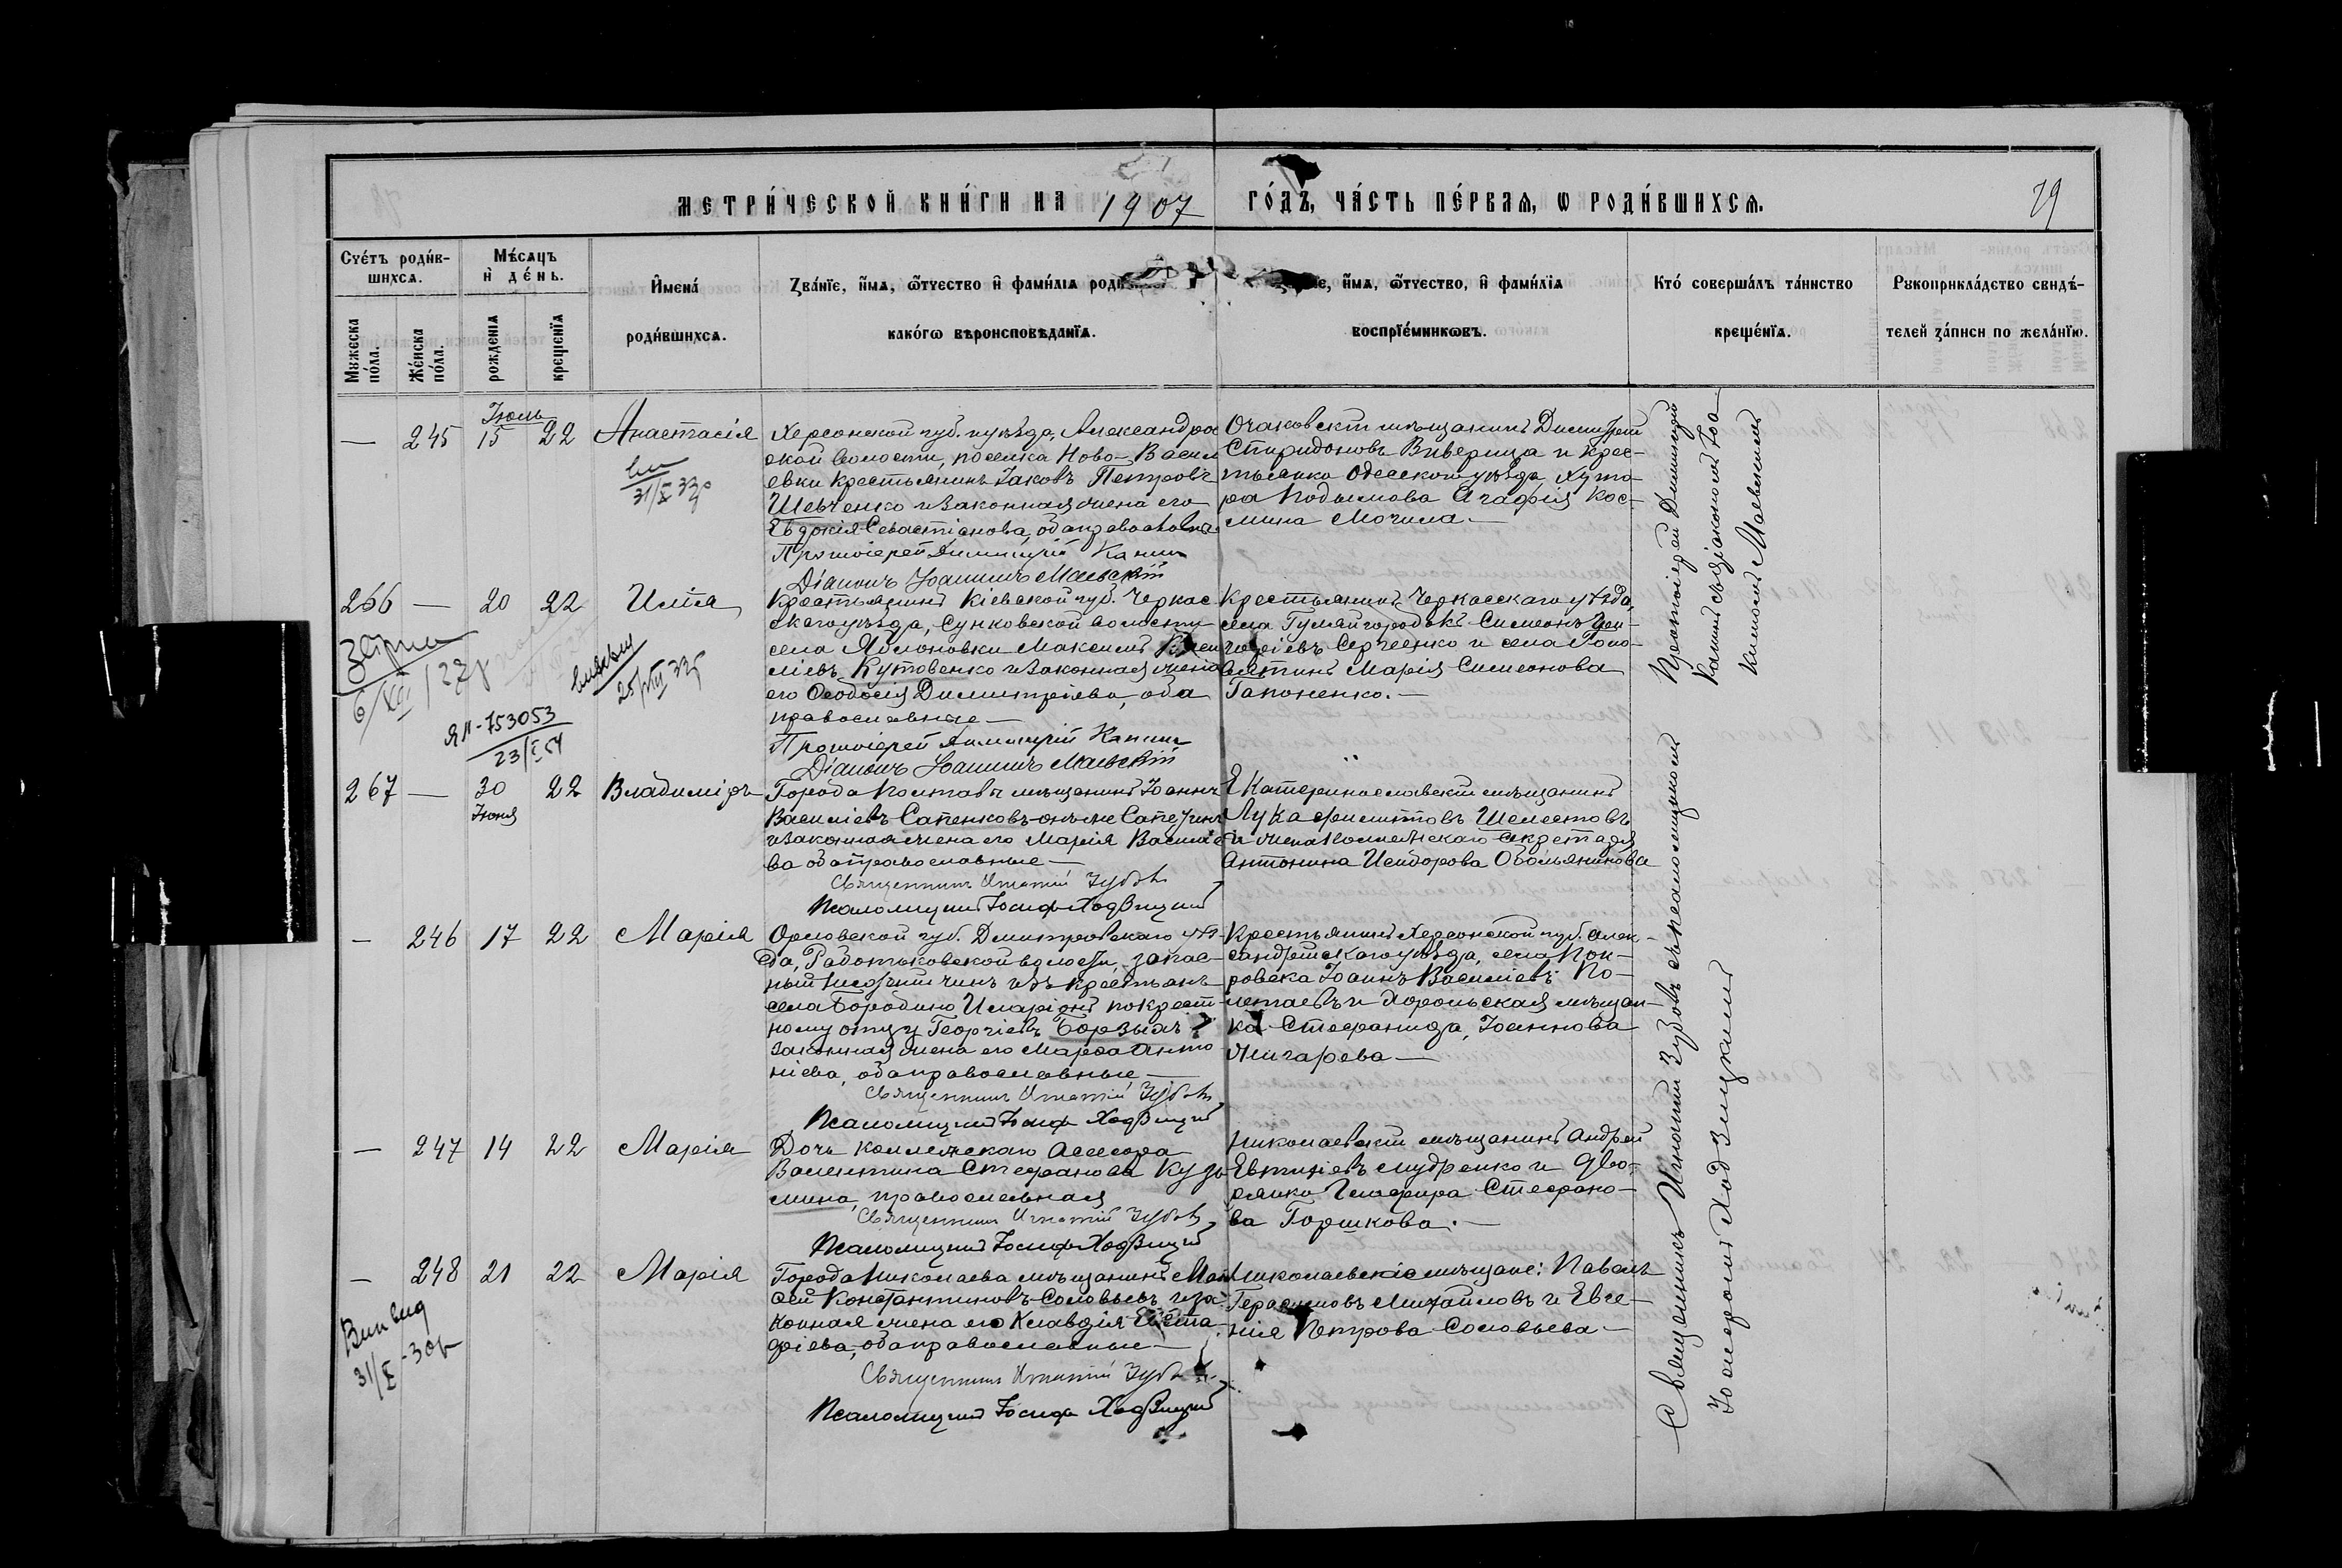 МЕТРИ́ЧЕСКОЙ КНИ́ГИ НА 1907 ГО́ДЪ, ЧА́СТЬ ПЕ́РВАѦ, Ѡ РОДИ́ВШИХСѦ.
79
Сче́тъ роди́в-
шихсѧ.
Мѣ́сѧцъ
и де́нь.
Мꙋжеска
по́ла.
Же́нска
по́ла.
рожденїѧ
крещенїѧ
И҆мена́
роди́вшихсѧ.
Зва́нїе, и҆́мѧ, ѻ҆́тчество и҆ фами́лїѧ
како́гѡ вѣроисповѣ́данїѧ.
и҆́мѧ, ѻ҆́тчество, и҆ фами́лїѧ
воспрїе́мникѡвъ.
Кто́ соверша́лъ та́инство
креще́нїѧ.
Рꙋкоприкла́дство свидѣ́-
телей за́писи по жела́нїю.
— 245 Іюль 15 22 Анастасія
Херсонской губ. и уѣзда, Александров
ской волости, поселка Ново-Васил
евки крестьянинъ Іаковъ Петровъ
Шевченко и законная жена его
Евдокія Севастіанова, оба православные
Протоіерей Димитрій Канин
Діаконъ Іоаннъ Маевскій
Очаковскій мѣщанинъ Димитрій
Спиридоновъ Виверица и крес-
тьянка Одесского уѣзда, хуто-
ра Подымова Агафія Кос-
мина Могила.—
31/X 33г
266 — 20 22 Илія
Крестьянинъ Кіевской губ. Черкас
скаго уѣзда, Сунковской волости
села Яблоновки Максимъ
міевъ Кутовенко и законная жена
его Ѳеодосія Димитріева, оба
православные—
Протоіерей Димитрій Канин
Діаконъ Іоаннъ Маевскій
Крестьянинъ Черкасскаго уѣзда,
села Гуляйгородокъ Симеонъ Геор-
гіевъ Сергеенко и села
Марія Симеонова
Гапоненко.—
6/XII 27г
25/VIII 33г
ЯП-753053
23/I 54
267 — 30 Іюня 22 Владиміръ
Города Полтавы мѣщанинъ Іоаннъ
Василіевъ Сапенковъ-онъ же
и законная жена его Марія Василіе
ва оба православные—
Священникъ Игнатій Зубовъ
Псаломщикъ Іосифъ Ходзицкій
Екатеринославскій мѣщанинъ
Лука Филипповъ Шелестовъ
и жена Коллежскаго Секретаря
Антонина Исидорова Обольянинова
— 246 17 22 Марія
Орловской губ. Дмитровскаго уѣз-
да, Работьковской волости, запас-
ный нижній чинъ изъ крестьянъ
села Бородино Иларіонъ по крест-
ному отцу Георгіевъ Борзыхъ и
законная жена его Марѳа Анто-
ніева, оба православные—
Священникъ Игнатій Зубовъ
Псаломщикъ Іосифъ Ходзицкій
Крестьянинъ Херсонской губ. Алек-
сандрійскаго уѣзда, села Пок-
ровска Іоаннъ Василіевъ По-
летаевъ и Хорольская мѣщан-
ка Стефанида Іоаннова
Жигарева—
— 247 14 22 Марія
Дочь Коллежскаго Асессора
Валентина Стефанова Кузь
мина, православная
Священникъ Игнатій Зубовъ
Псаломщикъ Іосифъ Ходзицкій
Николаевскій мѣщанинъ Андрей
Евтихіевъ Мудренко и дво-
рянка Глафира Стефано-
ва Горшкова.—
— 248 21 22 Марія
Города Николаева мѣщанинъ
сей Константиновъ Соловьевъ и за
конная жена его Клавдія Евста
фіева, оба православные—
Священникъ Игнатій Зубовъ
Псаломщикъ Іосифъ Ходзицкій
Николаевскіе мѣщане: Павелъ
Герасимовъ Михайловъ и Евге-
нія Петрова Соловьева—
31/X-30г
Протоіерей Димитрій
Канинъ съ діакономъ Іоа-
нномъ Маевскимъ
Священникъ Игнатій Зубовъ съ псаломщикомъ
Іосифомъ Ходзицкимъ